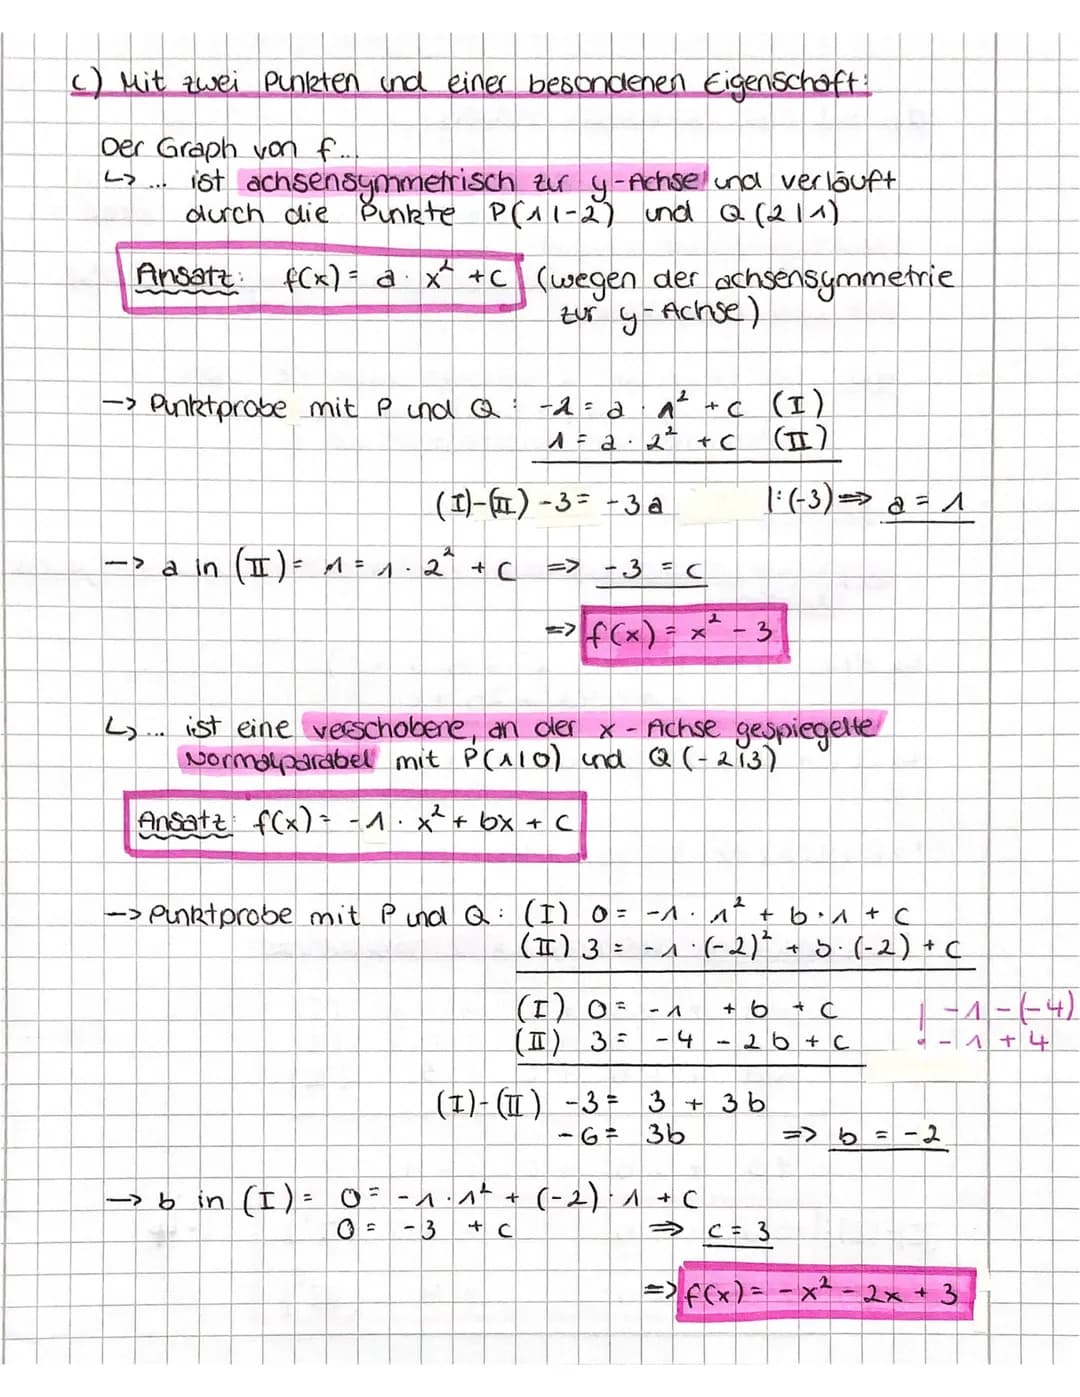 c) Mit zwei Punkten und einer besondenen Eigenschaft:
Der Graph von f...
↳ ... ist achsensymmetrisch zur y-Achse und verläuft
durch die Punkte P(1|-2) und Q(2|1)
Ansatz: f(x) = a · x² + c (wegen der achsensymmetrie
zur y-Achse)
-> Punktprobe mit P und Q: -2 = a · 1² + c (I)
1 = a · 2² + c (II)
(I)-(II) -3 = -3a |:(-3) => a = 1
-> a in (II) = 1 = 1 · 2² + c => -3 = c
=> f(x) = x² - 3
↳ ... ist eine verschobene, an der x-Achse gespiegelte
Normalparabel mit P(1|0) und Q(-2|3)
Ansatz: f(x) = -1 · x² + bx + c
-> Punktprobe mit P und Q: (I) 0 = -1 · 1² + b · 1 + c
(II) 3 = -1 · (-2)² + b · (-2) + c
(I) 0 = -1 + b + c | -1 - (-4)
(II) 3 = -4 - 2b + c ! -1 + 4
(I)-(II) -3 = 3 + 3b
-6 = 3b => b = -2
-> b in (I) = 0 = -1 · 1² + (-2) · 1 + c
0 = -3 + c => c = 3
=> f(x) = -x² - 2x + 3